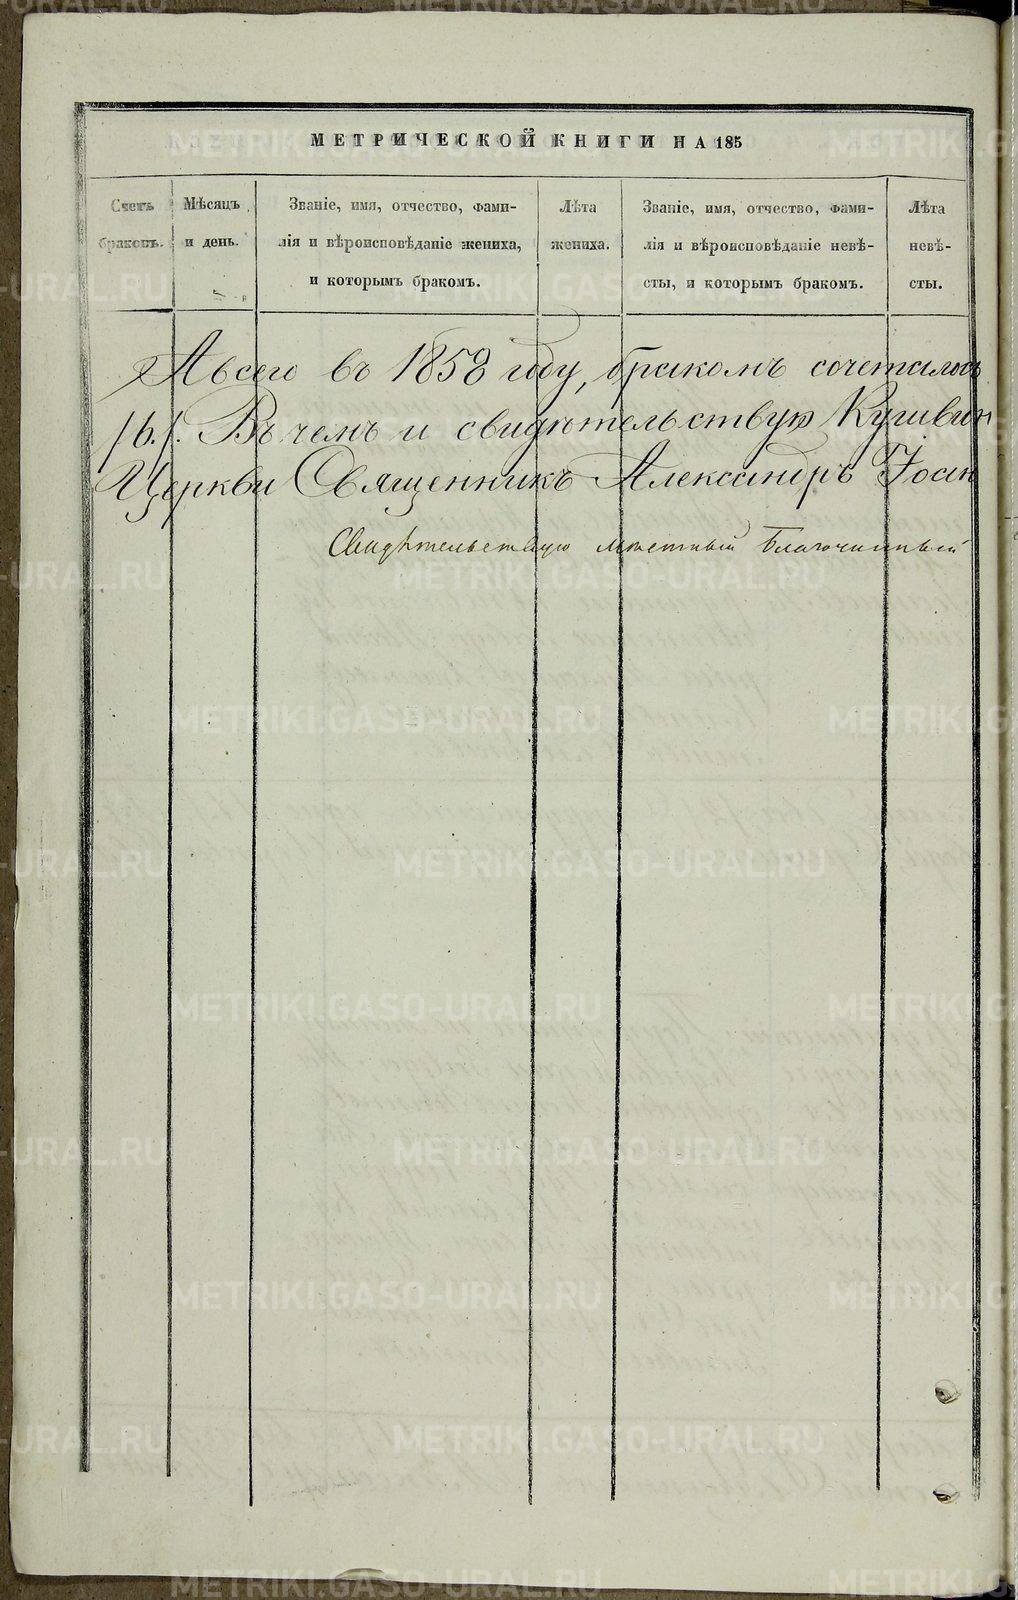 МЕТРИЧЕСКОЙ КНИГИ НА 185
Счетъ
браковъ.
Мѣсяцъ
и день.
Званіе, имя, отчество, фами-
лія и вѣроисповѣданіе жениха,
и которымъ бракомъ.
Лѣта
жениха.
Званіе, имя, отчество, фами-
лія и вѣроисповѣданіе невѣ-
сты, и которымъ бракомъ.
Лѣта
невѣ-
сты.
А всего въ 1858 году, бракомъ сочеталось
Въ чемъ и свидѣтельствую Кушвин
Церкви Священникъ Александръ Іоан
Свидѣтельствую мѣстный Благочинный
METRIKI.GASO-URAL.RU